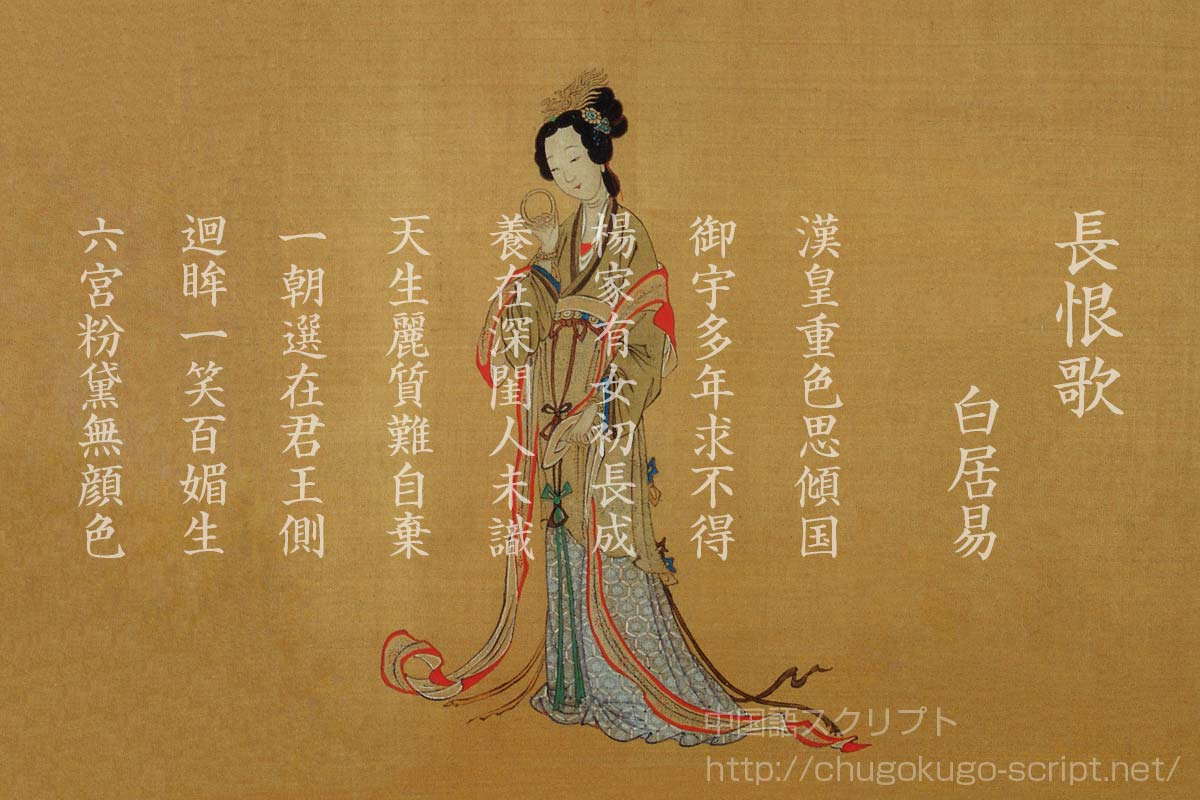 長恨歌
白居易
漢皇重色思傾国
御宇多年求不得
楊家有女初長成
養在深閨人未識
天生麗質難自棄
一朝選在君王側
迴眸一笑百媚生
六宮粉黛無顔色
中国語スクリプト
http://chugokugo-script.net/